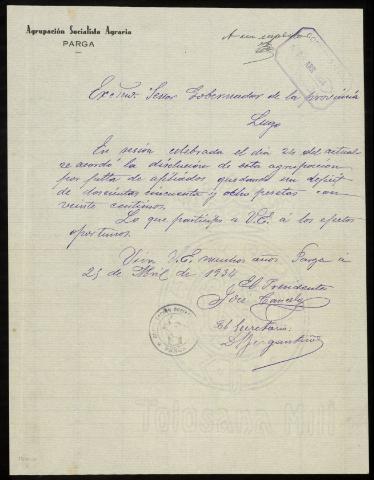 Agrupación Socialista Agraria
PARGA
Excmo. Señor Gobernador de la provincia
Lugo
En sesión celebrada el dia 24 del actual
se acordó la disolución de esta agrupación
por falta de afiliados quedando un deficit
de doscientas cincuenta y ocho pesetas con
veinte centimos.
Lo que participo a V.E. á los efectos
oportunos.
Viva V.E. muchos años. Parga á
25 de Abril de 1934
El Presidente
José
El Secretario